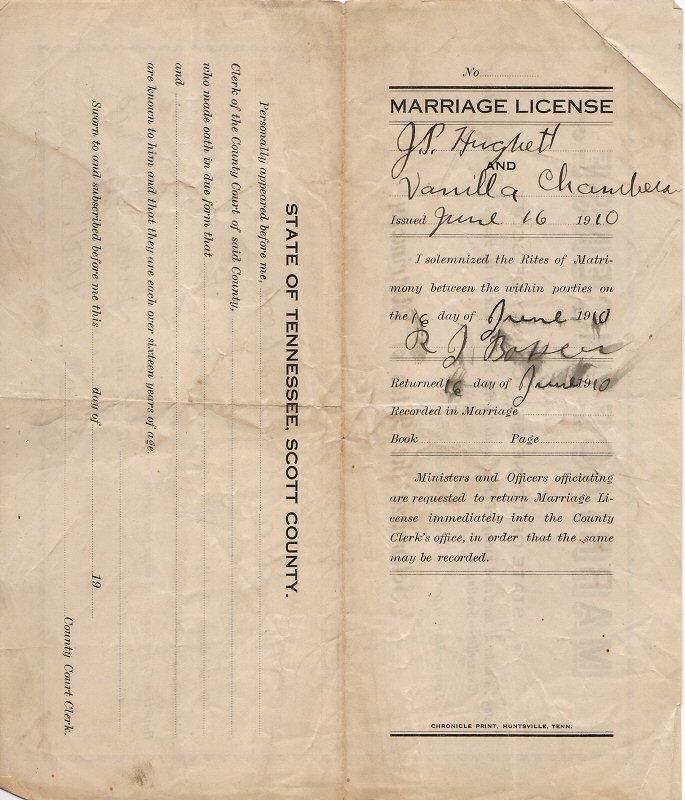 No
MARRIAGE LICENSE
J.P. Hughett
AND
Vanilla Chambers
Issued June 16 1910
I solemnized the Rites of Matri-
mony between the within parties on
the 16 day of June 1910
R J
Returned 16 day of June 1910
Recorded in Marriage
Book Page
Ministers and Officers officiating
are requested to return Marriage Li-
cense immediately into the County
Clerk's office, in order that the same
may be recorded.
CHRONICLE PRINT, HUNTSVILLE, TENN.
STATE OF TENNESSEE, SCOTT COUNTY.
Personally appeared before me,
Clerk of the County Court of said County,
who made oath in due form that
and
are known to him and that they are each over sixteen years of age.
Sworn to and subscribed before me this day of 19
County Court Clerk.